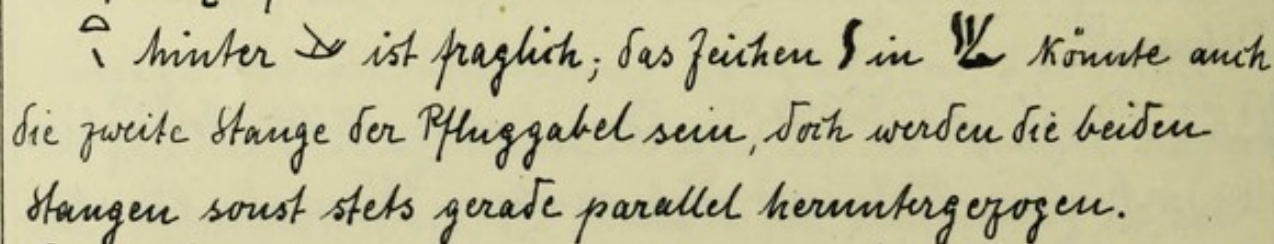 hinter ist fraglich; das Zeichen in könnte auch
die zweite Stange der Pfluggabel sein, doch werden die beiden
Stangen sonst stets gerade parallel heruntergezogen.